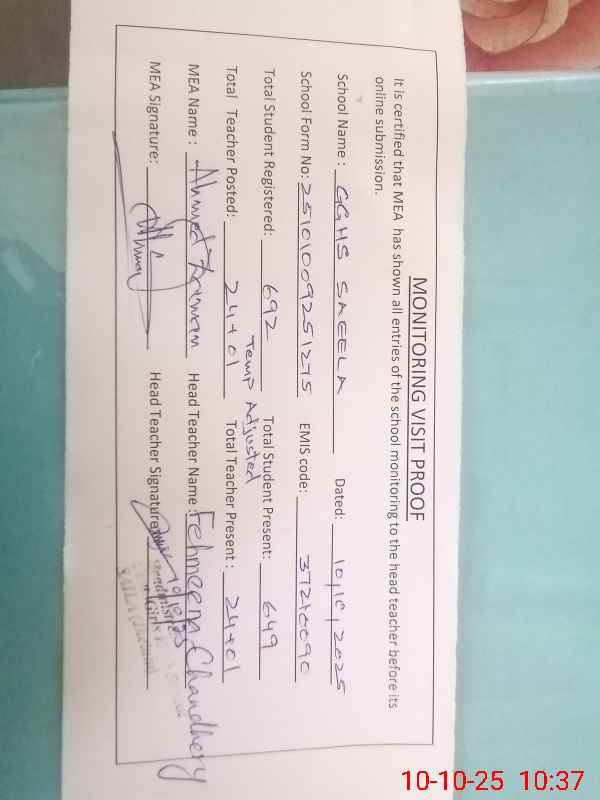 MONITORING VISIT PROOF
It is certified that MEA has shown all entries of the school monitoring to the head teacher before its
online submission.
School Name : GGHS SAEELA Dated: 10/10/2025
School Form No: 25101009251275 EMIS code: 37210090
Total Student Registered: 692 Total Student Present: 649
Temp Adjusted
Total Teacher Posted: 24+01 Total Teacher Present : 24+01
MEA Name : Ahmed Head Teacher Name : Fehmeena Chaudhery
MEA Signature: Head Teacher Signature
10/10/25
10-10-25 10:37